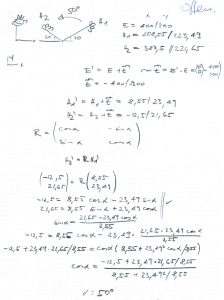 50°
X Y
E = 400/200
A1 = 408,55/223,49
A2 = 387,5/221,65
E' = E + t
t = -400/200
A1' = A1 + t = 8,55/23,49
A2' = A2 + t = -12,5/21,65
R = (cos α -sin α
sin α cos α)
A2' = R A1'
(-12,5 21,65) = R (8,55 23,49)
-12,5 = 8,55 cos α - 23,49 sin α
21,65 = 8,55 sin α + 23,49 cos α
sin α = 21,65 - 23,49 cos α / 8,55
-12,5 = 8,55 cos α - 23,49 · 21,65 - 23,49 cos α / 8,55
-12,5 + 23,49 · 21,65/8,55 = cos α (8,55 + 23,49² /8,55)
cos α = -12,5 + 23,49 · 21,65/8,55 / 8,55 + 23,49²/8,55
α = 50°